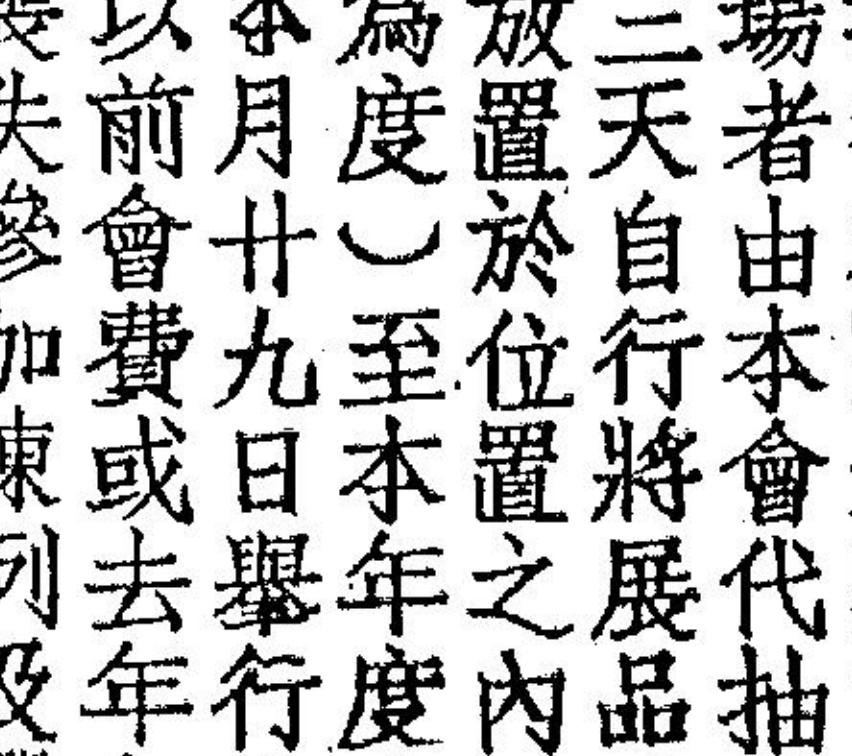 場者由本會代抽
三天自行將展品
放置於位置之內
為度）至本年度
本月廿九日舉行
以前會費或去年
失參加陳列及